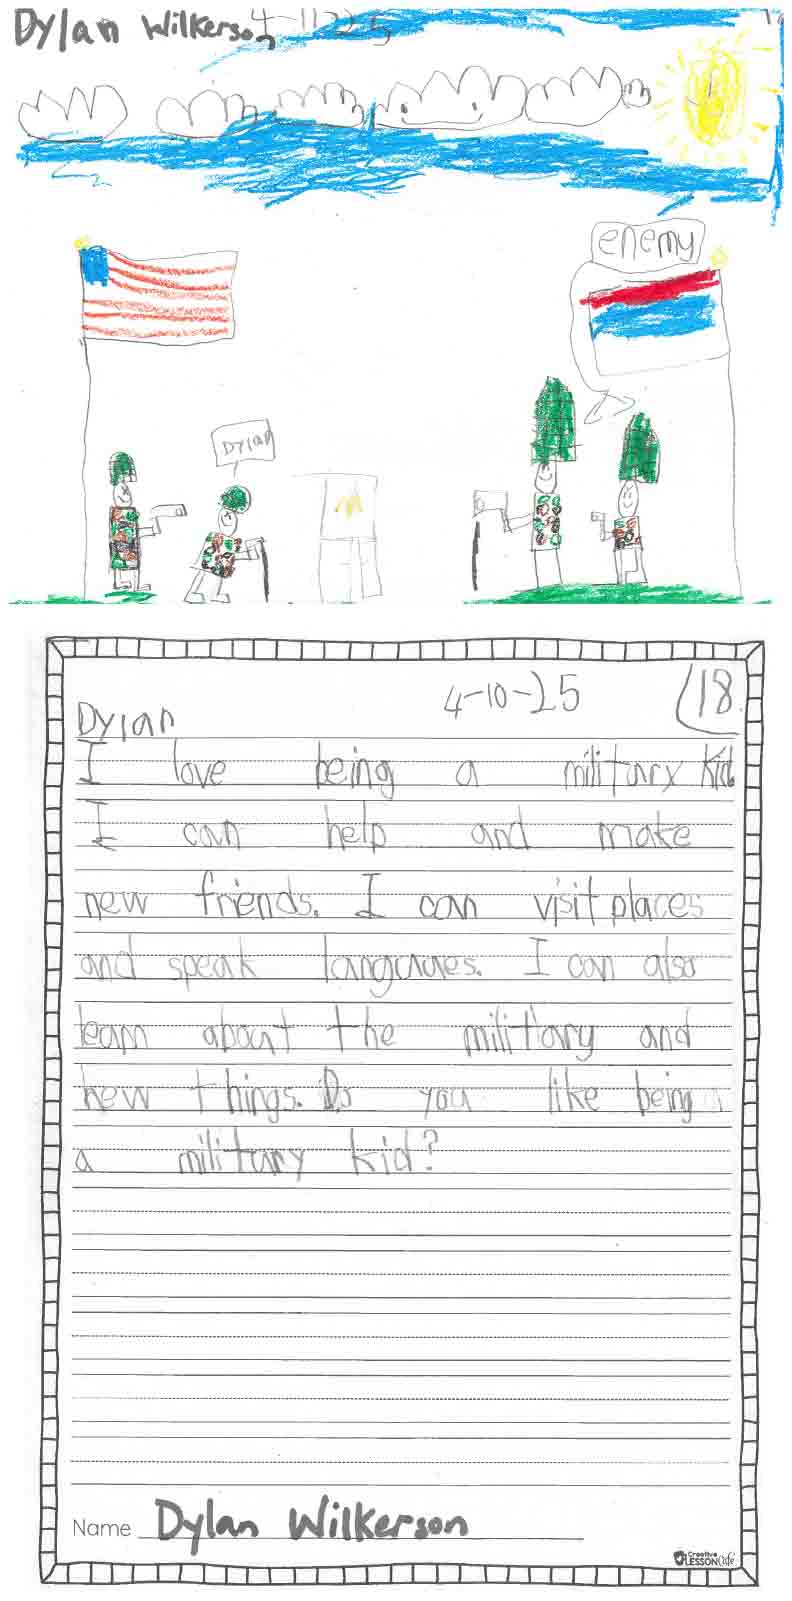 Dylan Wilkerson 4-11-25
enemy
Dylan
4-10-25 18
Dylan
I love being a military kid
I can help and make
new friends. I can visit places
and speak languaes. I can also
learn about the military and
new things. Do you like being
a military kid?
Name Dylan Wilkerson
Creative
LESSON Cafe